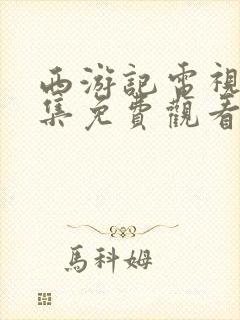 西游記電視
集免費觀看
馬科姆